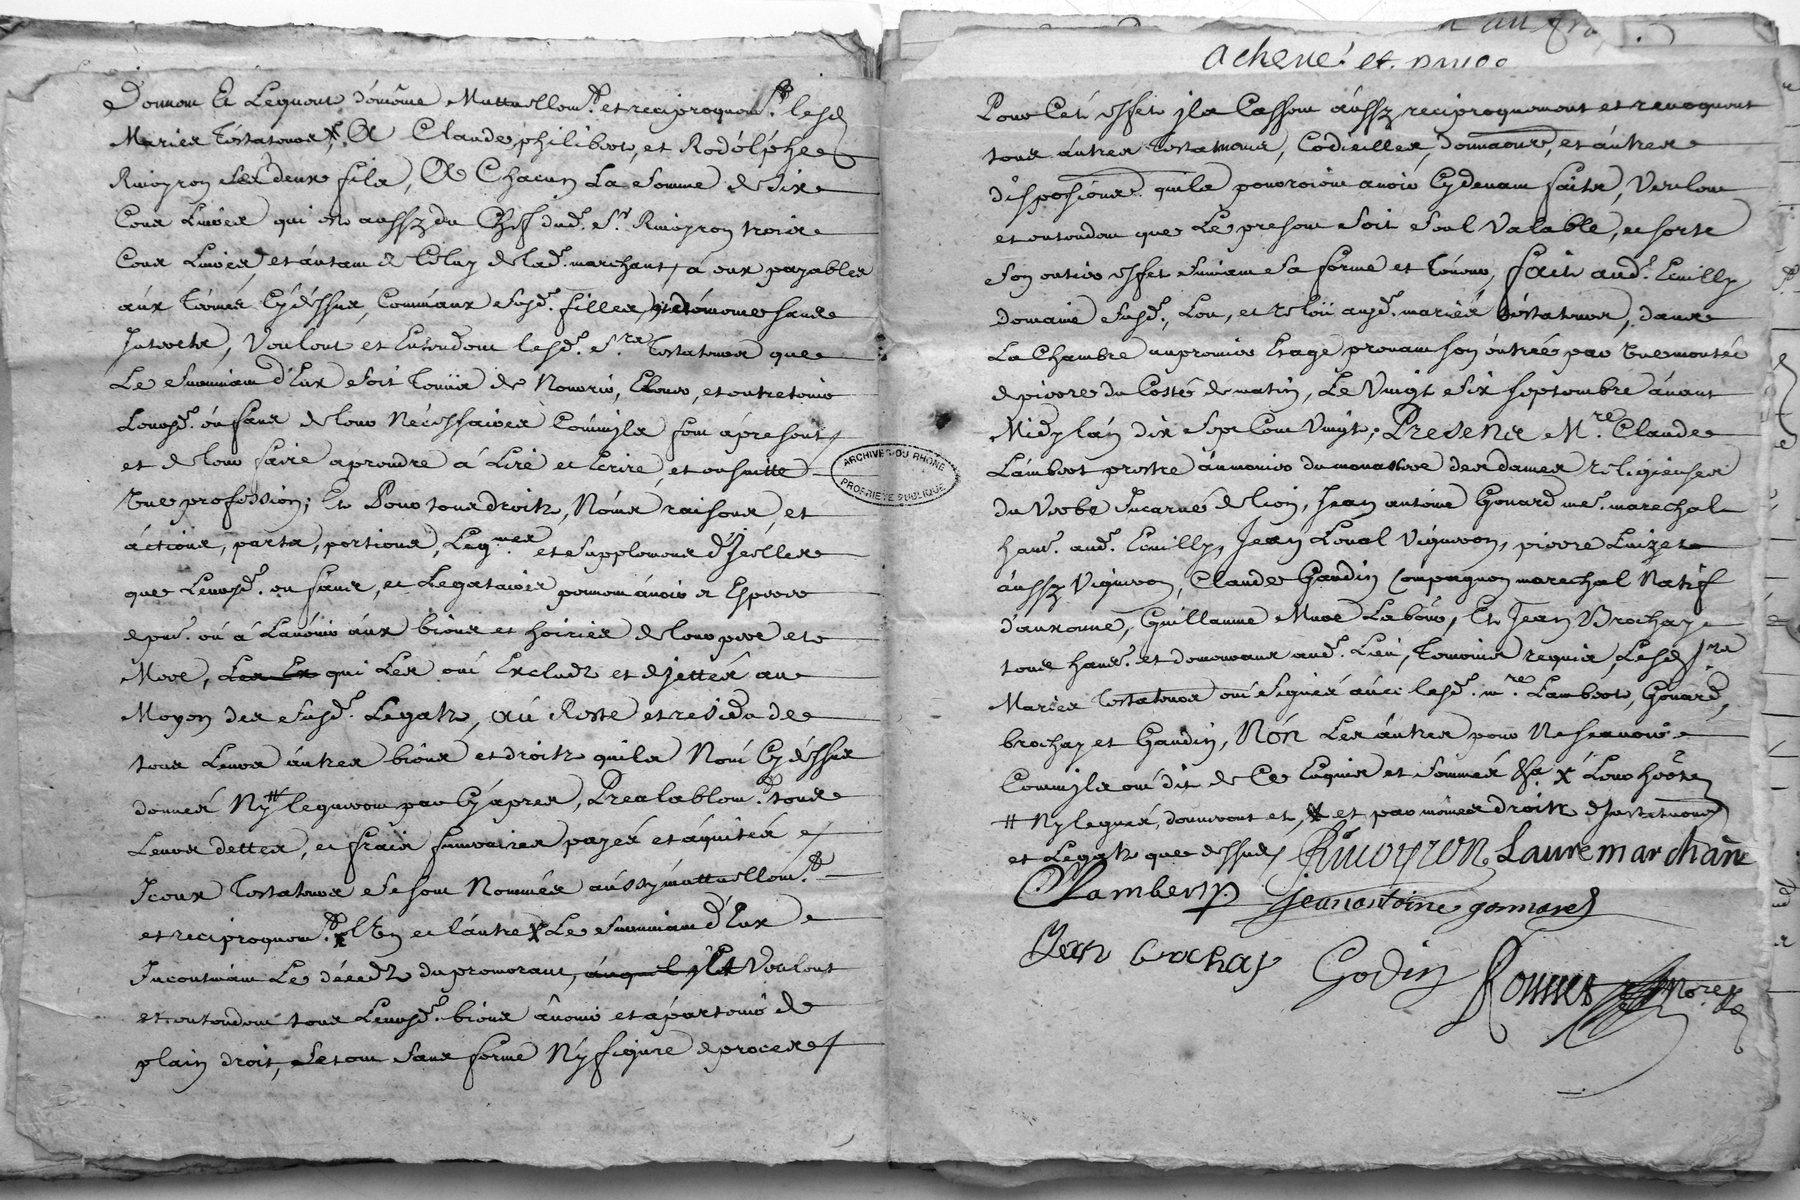 Donnon Et Leguont dememe Muttuellomt. et reciproquomt. lesd
Mariez Testatours, A Claude, philibert, et Rodolphe
Rivoyron Ses deux fils, A Chacun La Somme de Six
Cens Livres qui est aussy du Chef dudt. Sr. Rivoyron trois
Cens Livres, et autant de Celuy de ladt. marchant, a eux payables
aux Termes Cydessus, Comme aux Susdt. filles, et dememe sans
Interets, Voulont et Entendont lesdt. Srs. Testatours que
Le Survivant d'Eux Soit Tenus de Nourir, Elever, et entretenir
Leursdt. enfans de leur Necessaires Commils font apresent
et de leur faire aprendre a Lire et Ecrire, et ensuitte
Une profession; Et Pour tous droits, Noms raisons, et
actions, parts, portions, Legmes et Supplemens d'Jcelles
que Leursdt. enfans, et Legataires pouront avoir et Esperer
apnt. ou a L'avenir aux biens et hoiries de leur pere et
Mere, Les Ex qui Les ont Excluds et dejettés au
Moyen des Susdt. Legats, Au Reste et residu de
tous Leurs autres biens et droits quils Nont Cydessus
donnés Ny # leguerons par Cyapres, Prealablemt. tous
Leurs dettes, et frais funeraires payés et aquités
Jceux Testatours Se sont Nommés aussy muttuellomt.
et reciproquomt. x L'Un et l'autre x Le Survivant d'Eux
Incontinant Le deceds du premourant, auquel Ils Voulont
et entendont tous Leursdt. biens avenir et apartenir de
plain droit, Le tout Sans forme Ny figure de proces
Achevé et
Pour Cet effet jls Cassont aussy reciproquomont et revoquont
tous autres Testamens, Codicilles, donnaons, et autres
disposions quils pouroiont avoir Cydevant faits, Voulont
et entendont que Le presont Soit Seul Valable, et sorte
Son entier effet Suivant Sa forme et Teneur, fait audt. Ecully
domaine Susdt., Leu, et relû auxdt. mariés testatours, dans
La Chambre au premier Etage prenant son entrée par Une montée
de pierre du Costé de matin, Le Vingt Six septembre avant
Midy l'an dix Sept Cent Vingt; Presens Mre. Claude
Lambert prestre aumonier du monastere des dames religieuses
du Verbe Incarné de lion, Jean antoine Gonard me. marechal
hant. audt. Ecully, Jean Loual Vigneron, pierre Luizet
aussy Vigneron, Claude Gaudin Compagnon marechal Natif
d'auxonne, Guillaume Mure Labour, Et Jean Brochay
tous hant. et demeurans audt. Lieu, Temoins requis, Lesd Srs
Mariés Testatours ont Signés avec lesdt. mre. Lambert, Gonard,
brochay et Gaudin, Non Les autres pour Ne Scavoir
Commils ont dit de Ce Enquis et Sommés x Leur
# Ny legués, donneront et, x et par mêmes droits d'Institutions
et Legats que dessus Rivoyron Laure marchant
C Lambert p. jean antoine gonnard
Jean brochay Godin Nore Ro